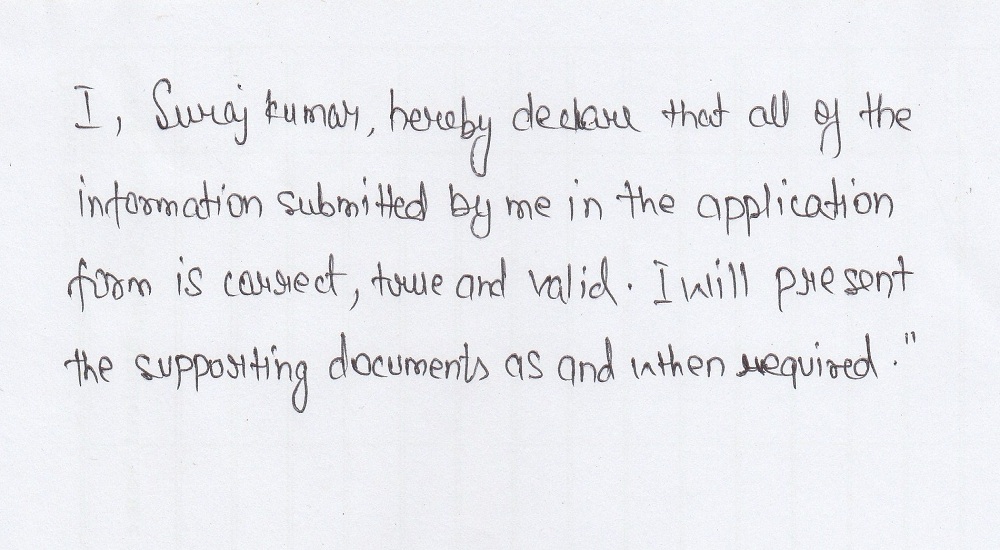 I, Suraj kumar, hereby declare that all of the
information submitted by me in the application
form is correct, true and valid. I will present
the supporting documents as and when required."